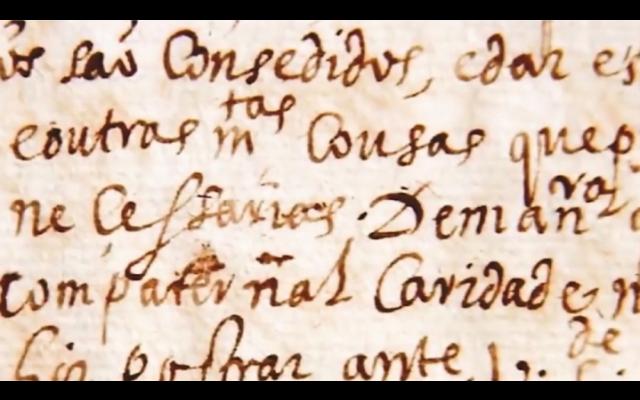 são Consedidos, edar es
eoutras mtas Cousas quep
ne Cessarias. Demanra
Com paternal Caridade
postrar ante V. de